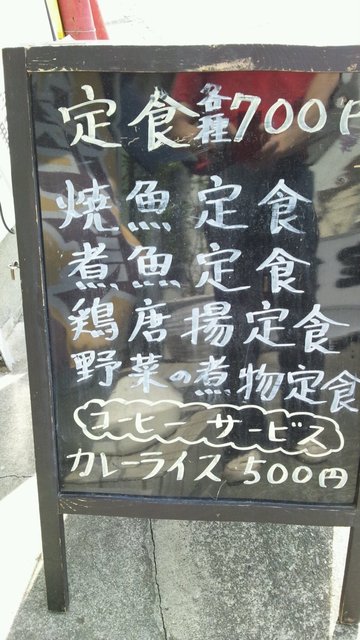 定食各種700円
焼魚定食
煮魚定食
鶏唐揚定食
野菜の煮物定食
コーヒーサービス
カレーライス 500円